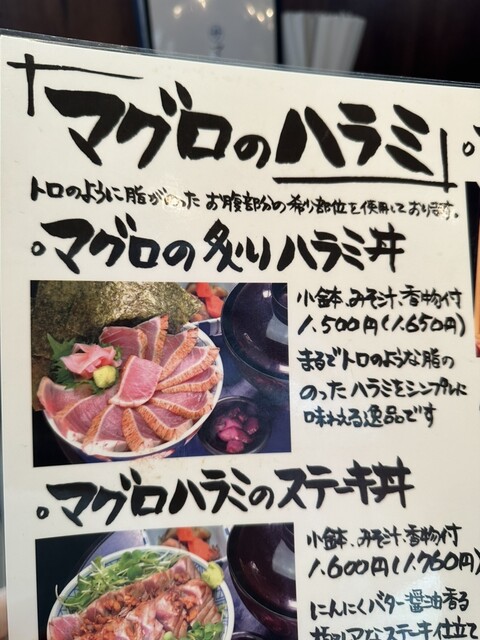 「マグロのハラミ」
トロのように脂がのった お腹部分の希少部位を使用しております。
。マグロの炙りハラミ丼
小鉢、みそ汁、香物付
1.500円(1.650円)
まるでトロのような脂の
のったハラミをシンプルに
味わえる逸品です
。マグロハラミのステーキ丼
小鉢、みそ汁、香物付
1.600円(1.760円)
にんにくバター醤油香る
ステーキ仕立て